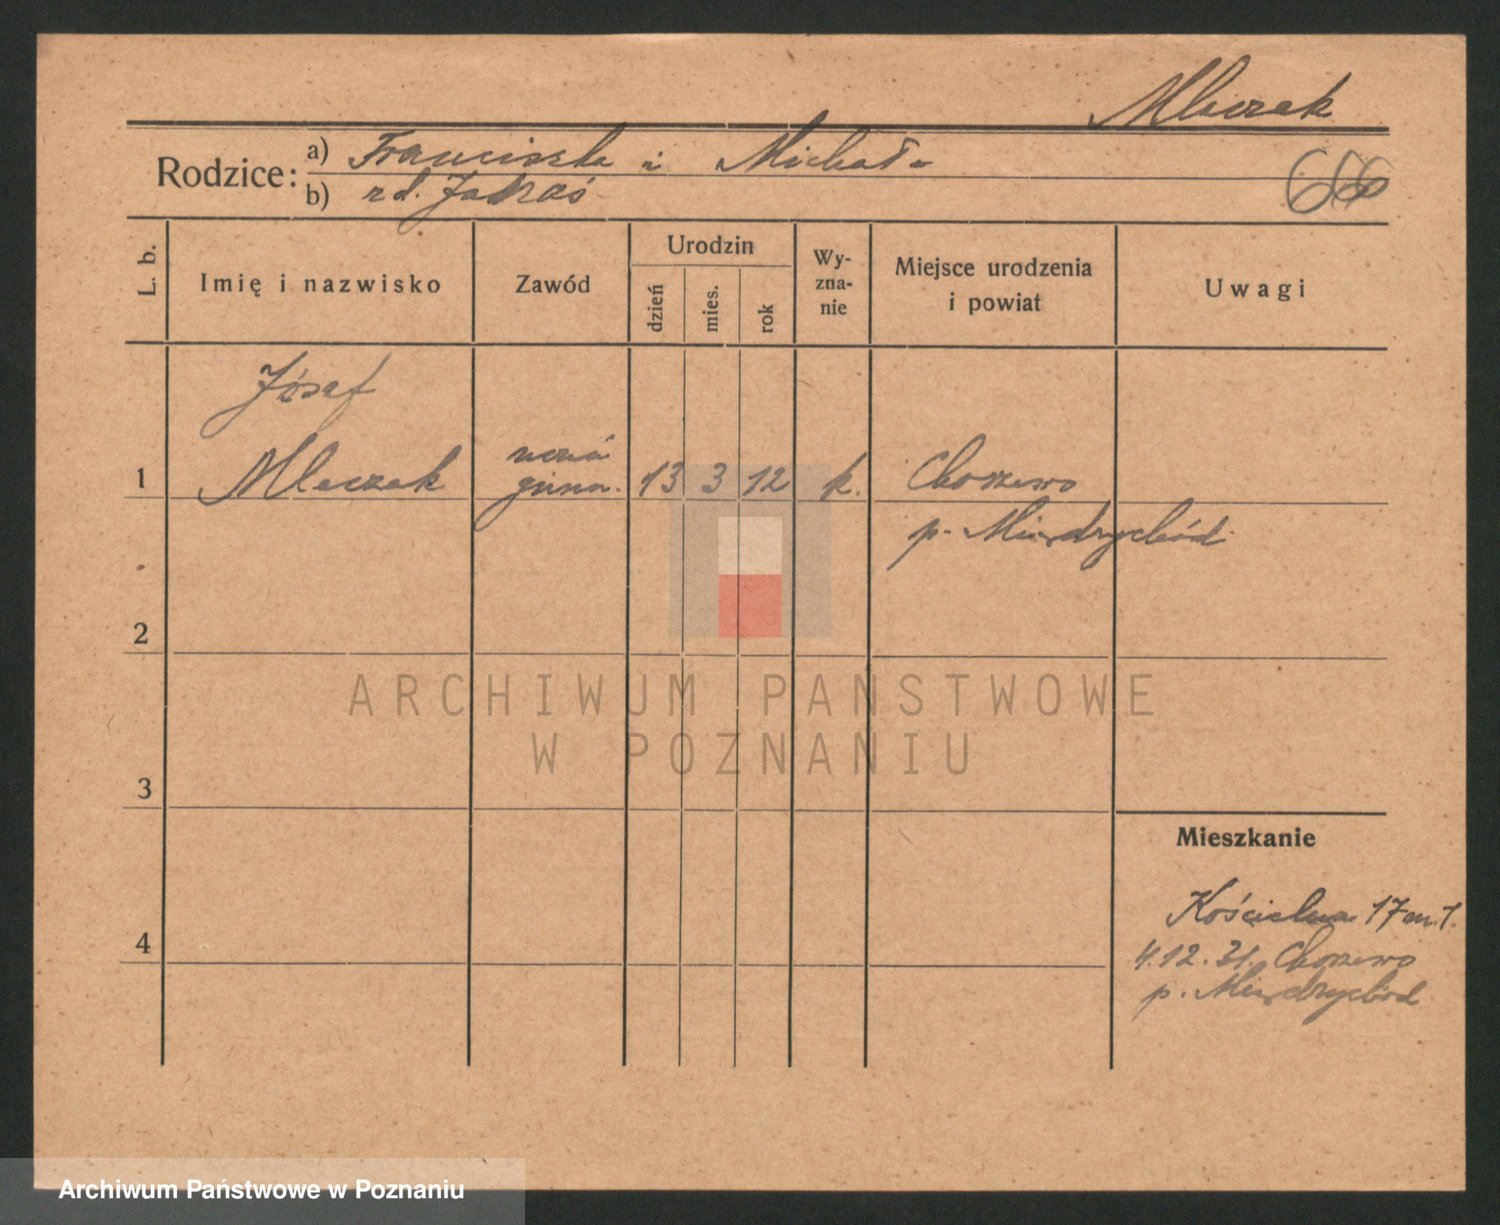 Mleczak
Rodzice: a) Franciszka i Michał
b) zd. Jakaś
666
L. b.
Imię i nazwisko
Zawód
Urodzin
dzień
mies.
rok
Wy-
zna-
nie
Miejsce urodzenia
i powiat
Uwagi
Józef
1 Mleczak 13 3 12 k. Chorzewo
p. Międzychód
2
3
4
Mieszkanie
Kościelna 17 m. 7.
4.12.31. Chorzewo
p. Międzychód
ARCHIWUM PAŃSTWOWE
W POZNANIU
Archiwum Państwowe w Poznaniu